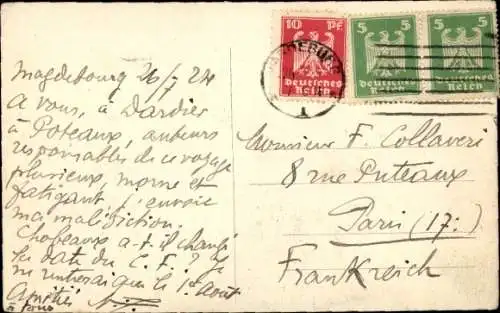 10 Pf
Deutsches
Reich
5
Deutsches
Reich
5
Deutsches
Reich
Magdebourg 26/7 24
A vous, à Dardier
à Poteaux, auteurs
responsables de ce voyage
pluvieux, morne et
fatigant j'envoie
ma malédiction.
Chobeaux a-t-il changé
la date du C. F. ? Je
ne rentrerai que le 1er Août
Amitiés
à tous
Monsieur F. Collaveri
8 rue Puteaux
Paris (17e)
Frankreich